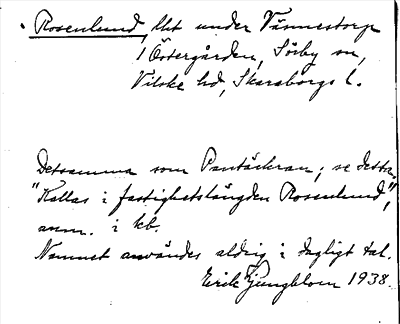 Rosenlund, lht under Vännestorp
1 Östergården, Sörby sn,
Vilske hd, Skaraborgs l.
Detsamma som Pantåkran; se detta.
"Kallas i fastighetslängden Rosenlund",
anm. i kb.
Namnet användes aldrig i dagligt tal.
Erik Ljungblom 1938.